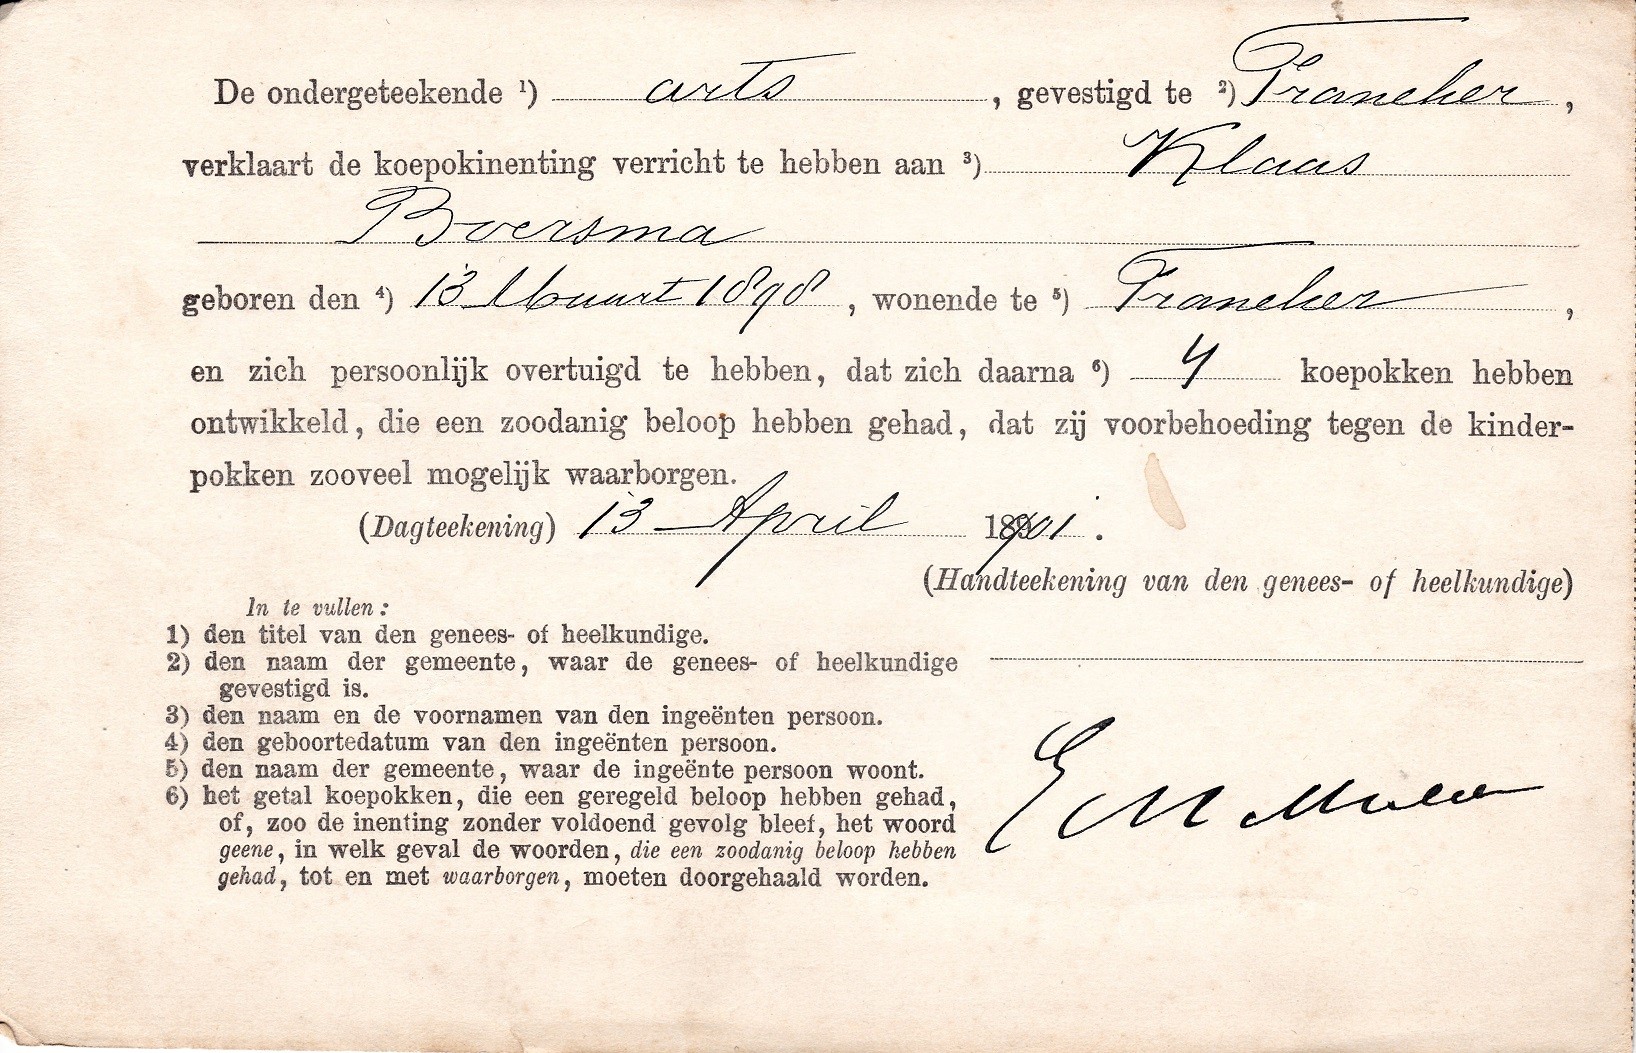 De ondergeteekende ¹) arts, gevestigd te ²) Franeker,
verklaart de koepokinenting verricht te hebben aan ³) Klaas
Boersma
geboren den ⁴) 13 Maart 1898, wonende te ⁵) Franeker,
en zich persoonlijk overtuigd te hebben, dat zich daarna ⁶) 4 koepokken hebben
ontwikkeld, die een zoodanig beloop hebben gehad, dat zij voorbehoeding tegen de kinder-
pokken zooveel mogelijk waarborgen.
(Dagteekening) 13 April 1901.
(Handteekening van den genees- of heelkundige)
In te vullen:
1) den titel van den genees- of heelkundige.
2) den naam der gemeente, waar de genees- of heelkundige
gevestigd is.
3) den naam en de voornamen van den ingeënten persoon.
4) den geboortedatum van den ingeënten persoon.
5) den naam der gemeente, waar de ingeënte persoon woont.
6) het getal koepokken, die een geregeld beloop hebben gehad,
of, zoo de inenting zonder voldoend gevolg bleef, het woord
geene, in welk geval de woorden, die een zoodanig beloop hebben
gehad, tot en met waarborgen, moeten doorgehaald worden.